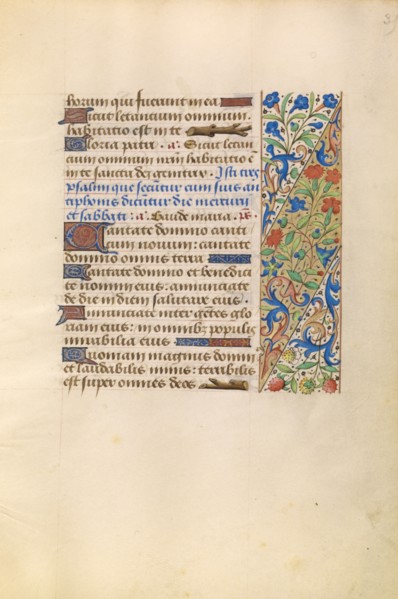 horum qui fuerunt in ea
Sicut letancium omnium
habitatio est in te
Gloria patri. a. Sicut letan
cium omnium nrm habitatio e
in te sancta dei genitrix. Isti tres
psalmi que secuntur cum suis an
tiphonis dicuntur die mercurii
et sabbati: a. Gaude maria. ps.
Cantate domino canti
cum novum: cantate
domino omnis terra
Cantate domino et benedici
te nomini eius: annunciate
de die in diem salutare eius.
Annunciate inter gentes glo
riam eius: in omnibz populis
mirabilia eius
Quoniam magnus domin
et laudabilis nimis: terribilis
est super omnes deos